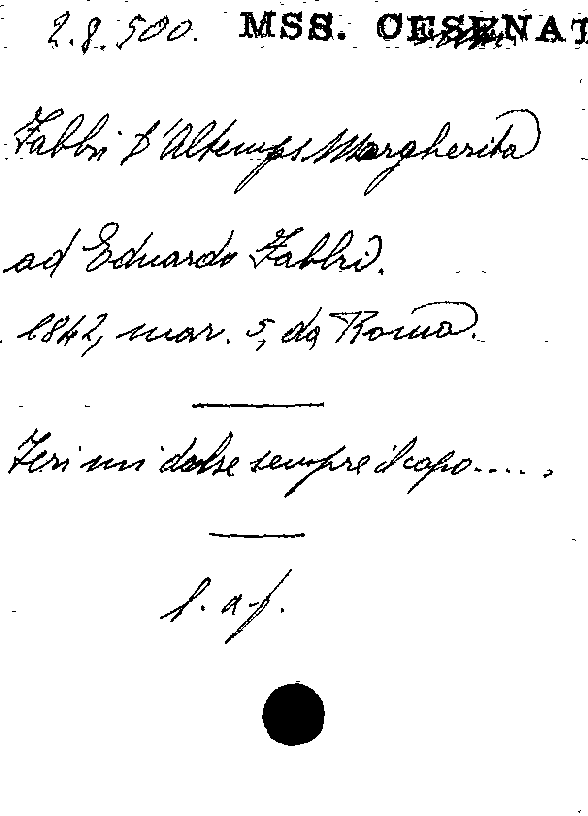 2.8.500. MSS. CESENAT
Fabbri D'Altemps Margherita
ad Eduardo Fabbri.
1842, mar. 5, da Roma.
Ieri mi dolse sempre il capo.....
l. a f.